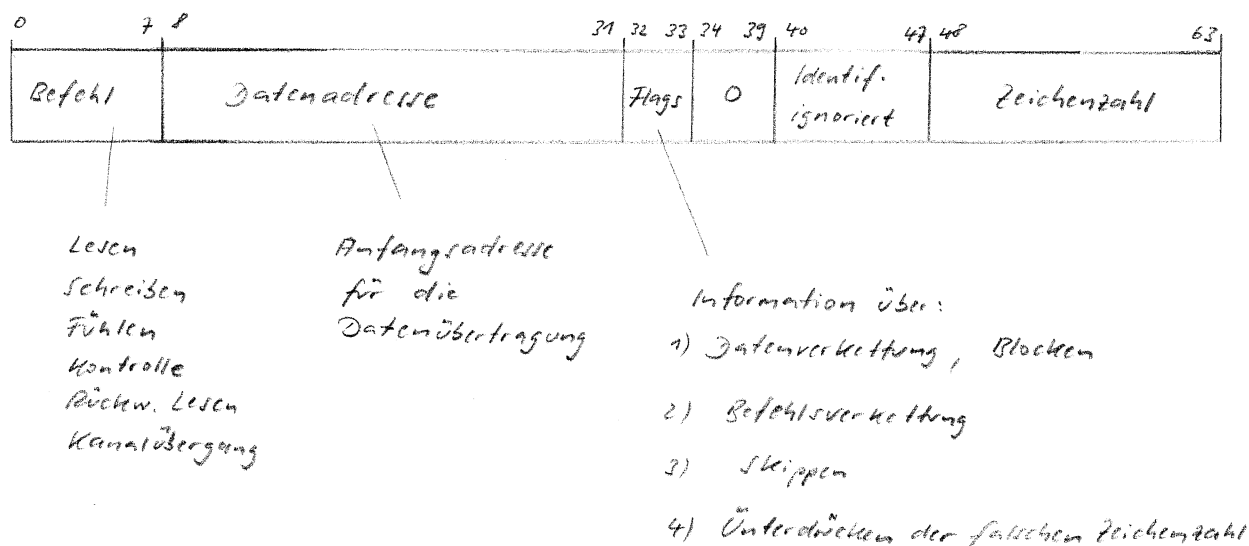 0 7 8 31 32 33 34 39 40 47 48 63
Befehl Datenadresse Flags 0 Identif. ignoriert Zeichenzahl
Lesen
Schreiben
Fühlen
Kontrolle
Rückw. Lesen
Kanalübergang
Anfangsadresse
für die
Datenübertragung
Information über:
1) Datenverkettung, Blocken
2) Befehlsverkettung
3) Skippen
4) Unterdrücken der falschen Zeichenzahl